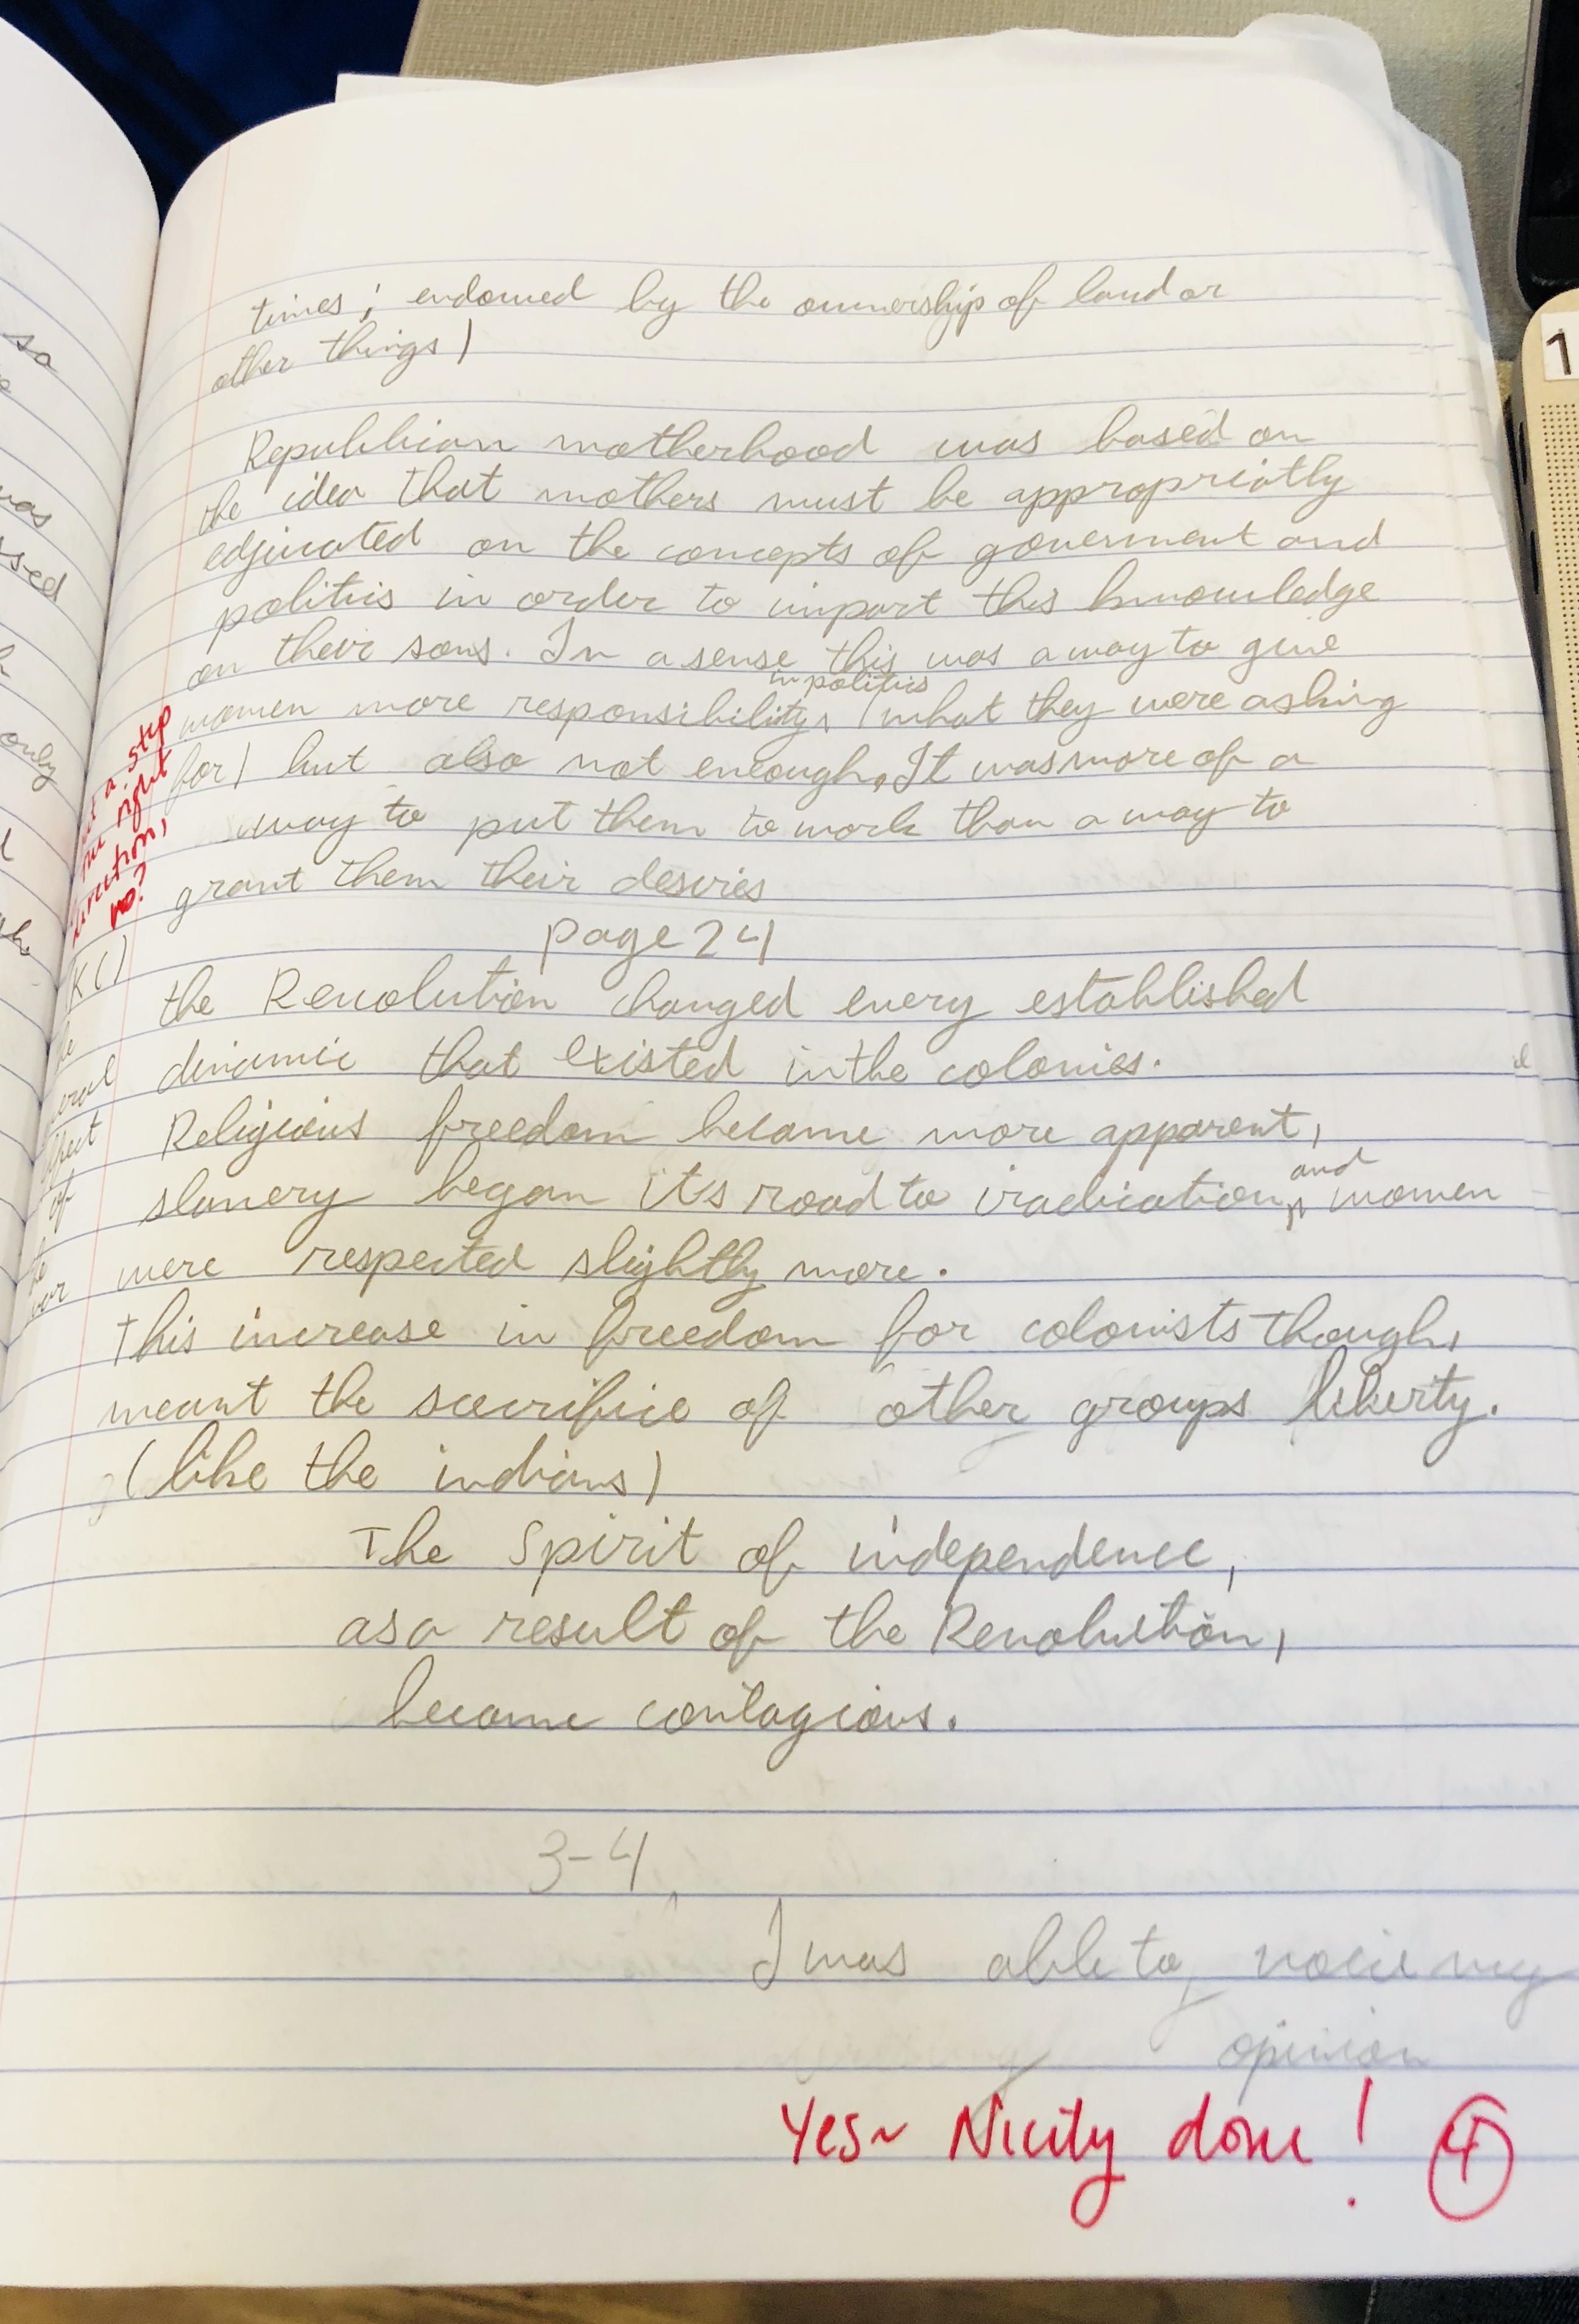 times; endowed by the ownership of land or
other things)
Republican motherhood was based on
the idea that mothers must be appropriatly
edjucated on the concepts of goverment and
politics in order to impart this knowledge
on their sons. In a sense this was a way to give
in politics
women more responsibility, (what they were asking
for) but also not enough. It was more of a
way to put them to work than a way to
grant them their desires
a step
right
no?
page 24
the Revolution changed every established
dinamic that existed in the colonies.
Religious freedom became more apparent,
and
slavery began it's road to iradication, women
were respected slightly more.
of
This increase in freedom for colonists though,
meant the sacrifice of other groups liberty.
(like the indians)
The Spirit of independence,
as a result of the Revolution,
became contagious.
3-4
I was able to voice my
opinion
Yes~ Nicely done! 4
so
was
ssed
only